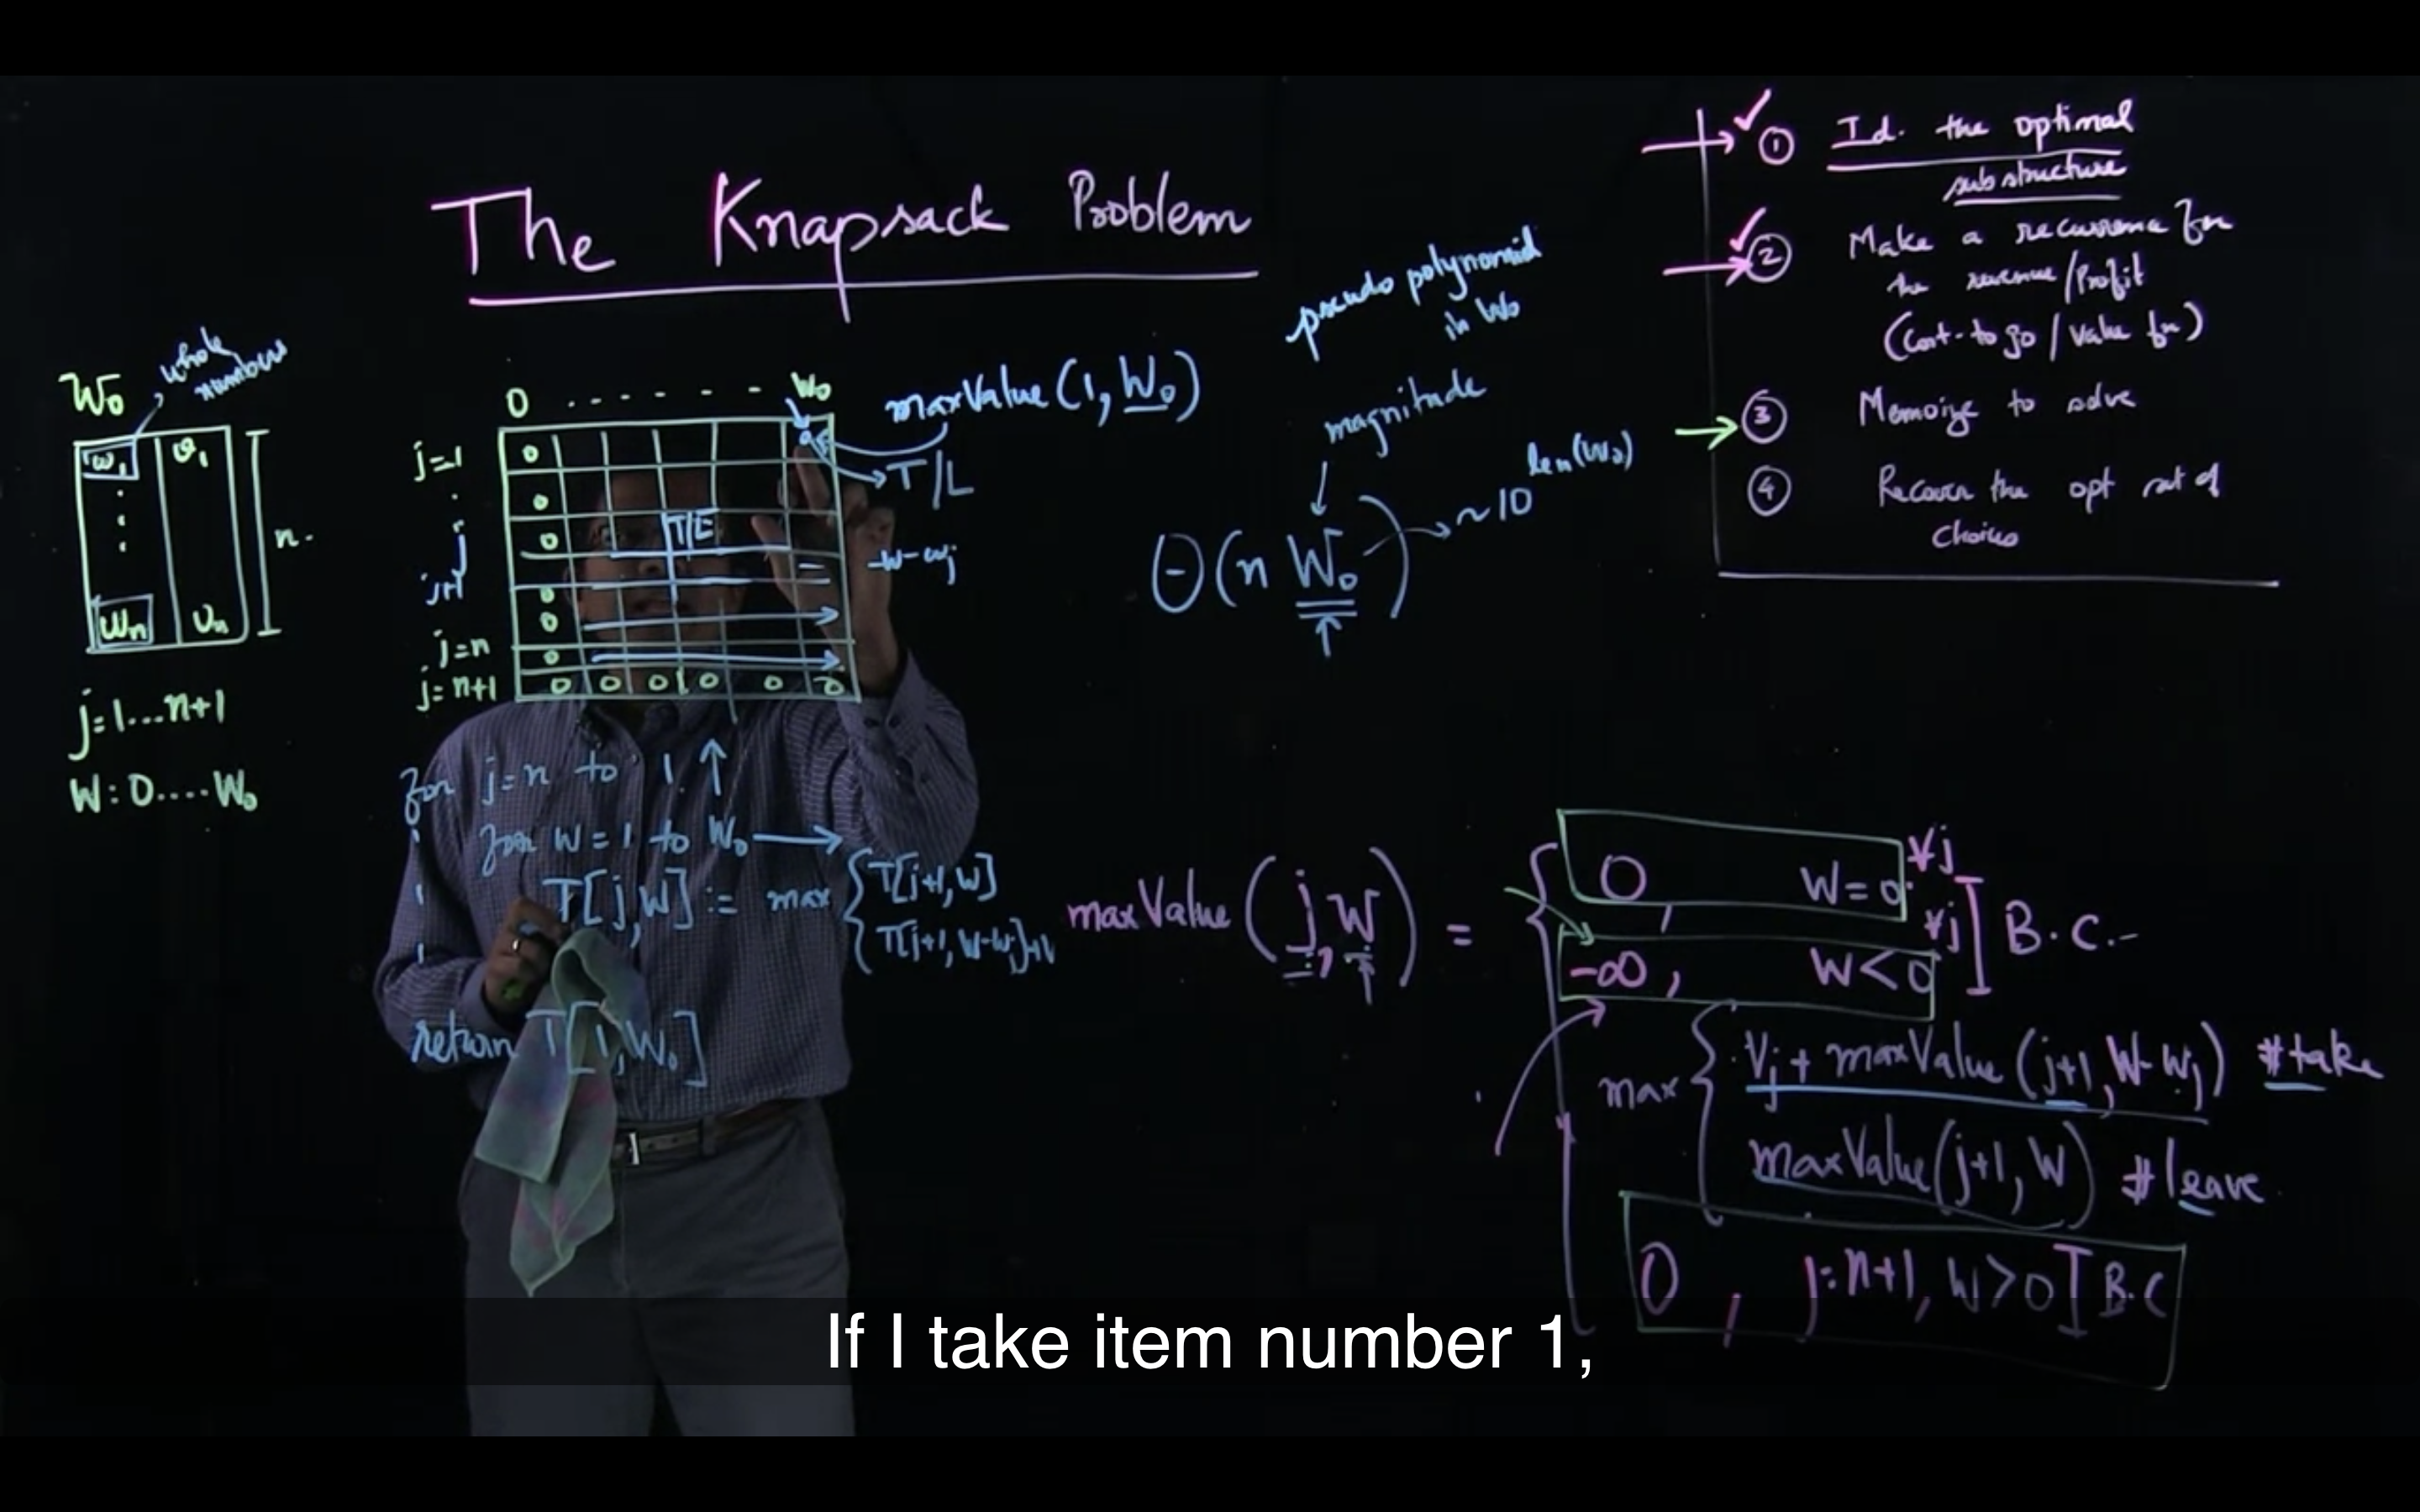 The Knapsack Problem
① Id. the optimal
substructure
② Make a recurrence fn
the revenue/Profit
(Cost-to go / Value fn)
③ Memoize to solve
④ Recover the opt set of
choices
W₀
whole
numbers
w₁ v₁
wₙ vₙ
n.
j=1...n+1
W:0....W₀
0 . . . . . . . W₀
j=1
j
j+1
j=n
j=n+1
0
0
0
0
0
0
0 0 0 0 0 0
T/L
maxValue(1, W₀)
T/L
W-wj
pseudo polynomial
in W₀
magnitude
Θ(n W₀)
~10^len(W₀)
for j=n to 1 ↑
for W=1 to W₀ →
T[j,W] := max { T[j+1,W]
T[j+1, W-wj]+V
return T[1,W₀]
maxValue(j,W) =
0, W=0 ∀j
-∞, W<0 ∀j
] B.C.
max { Vj + maxValue(j+1, W-wj) #take
maxValue(j+1, W) #leave
0, j=n+1, W>0 ] B.C
If I take item number 1,